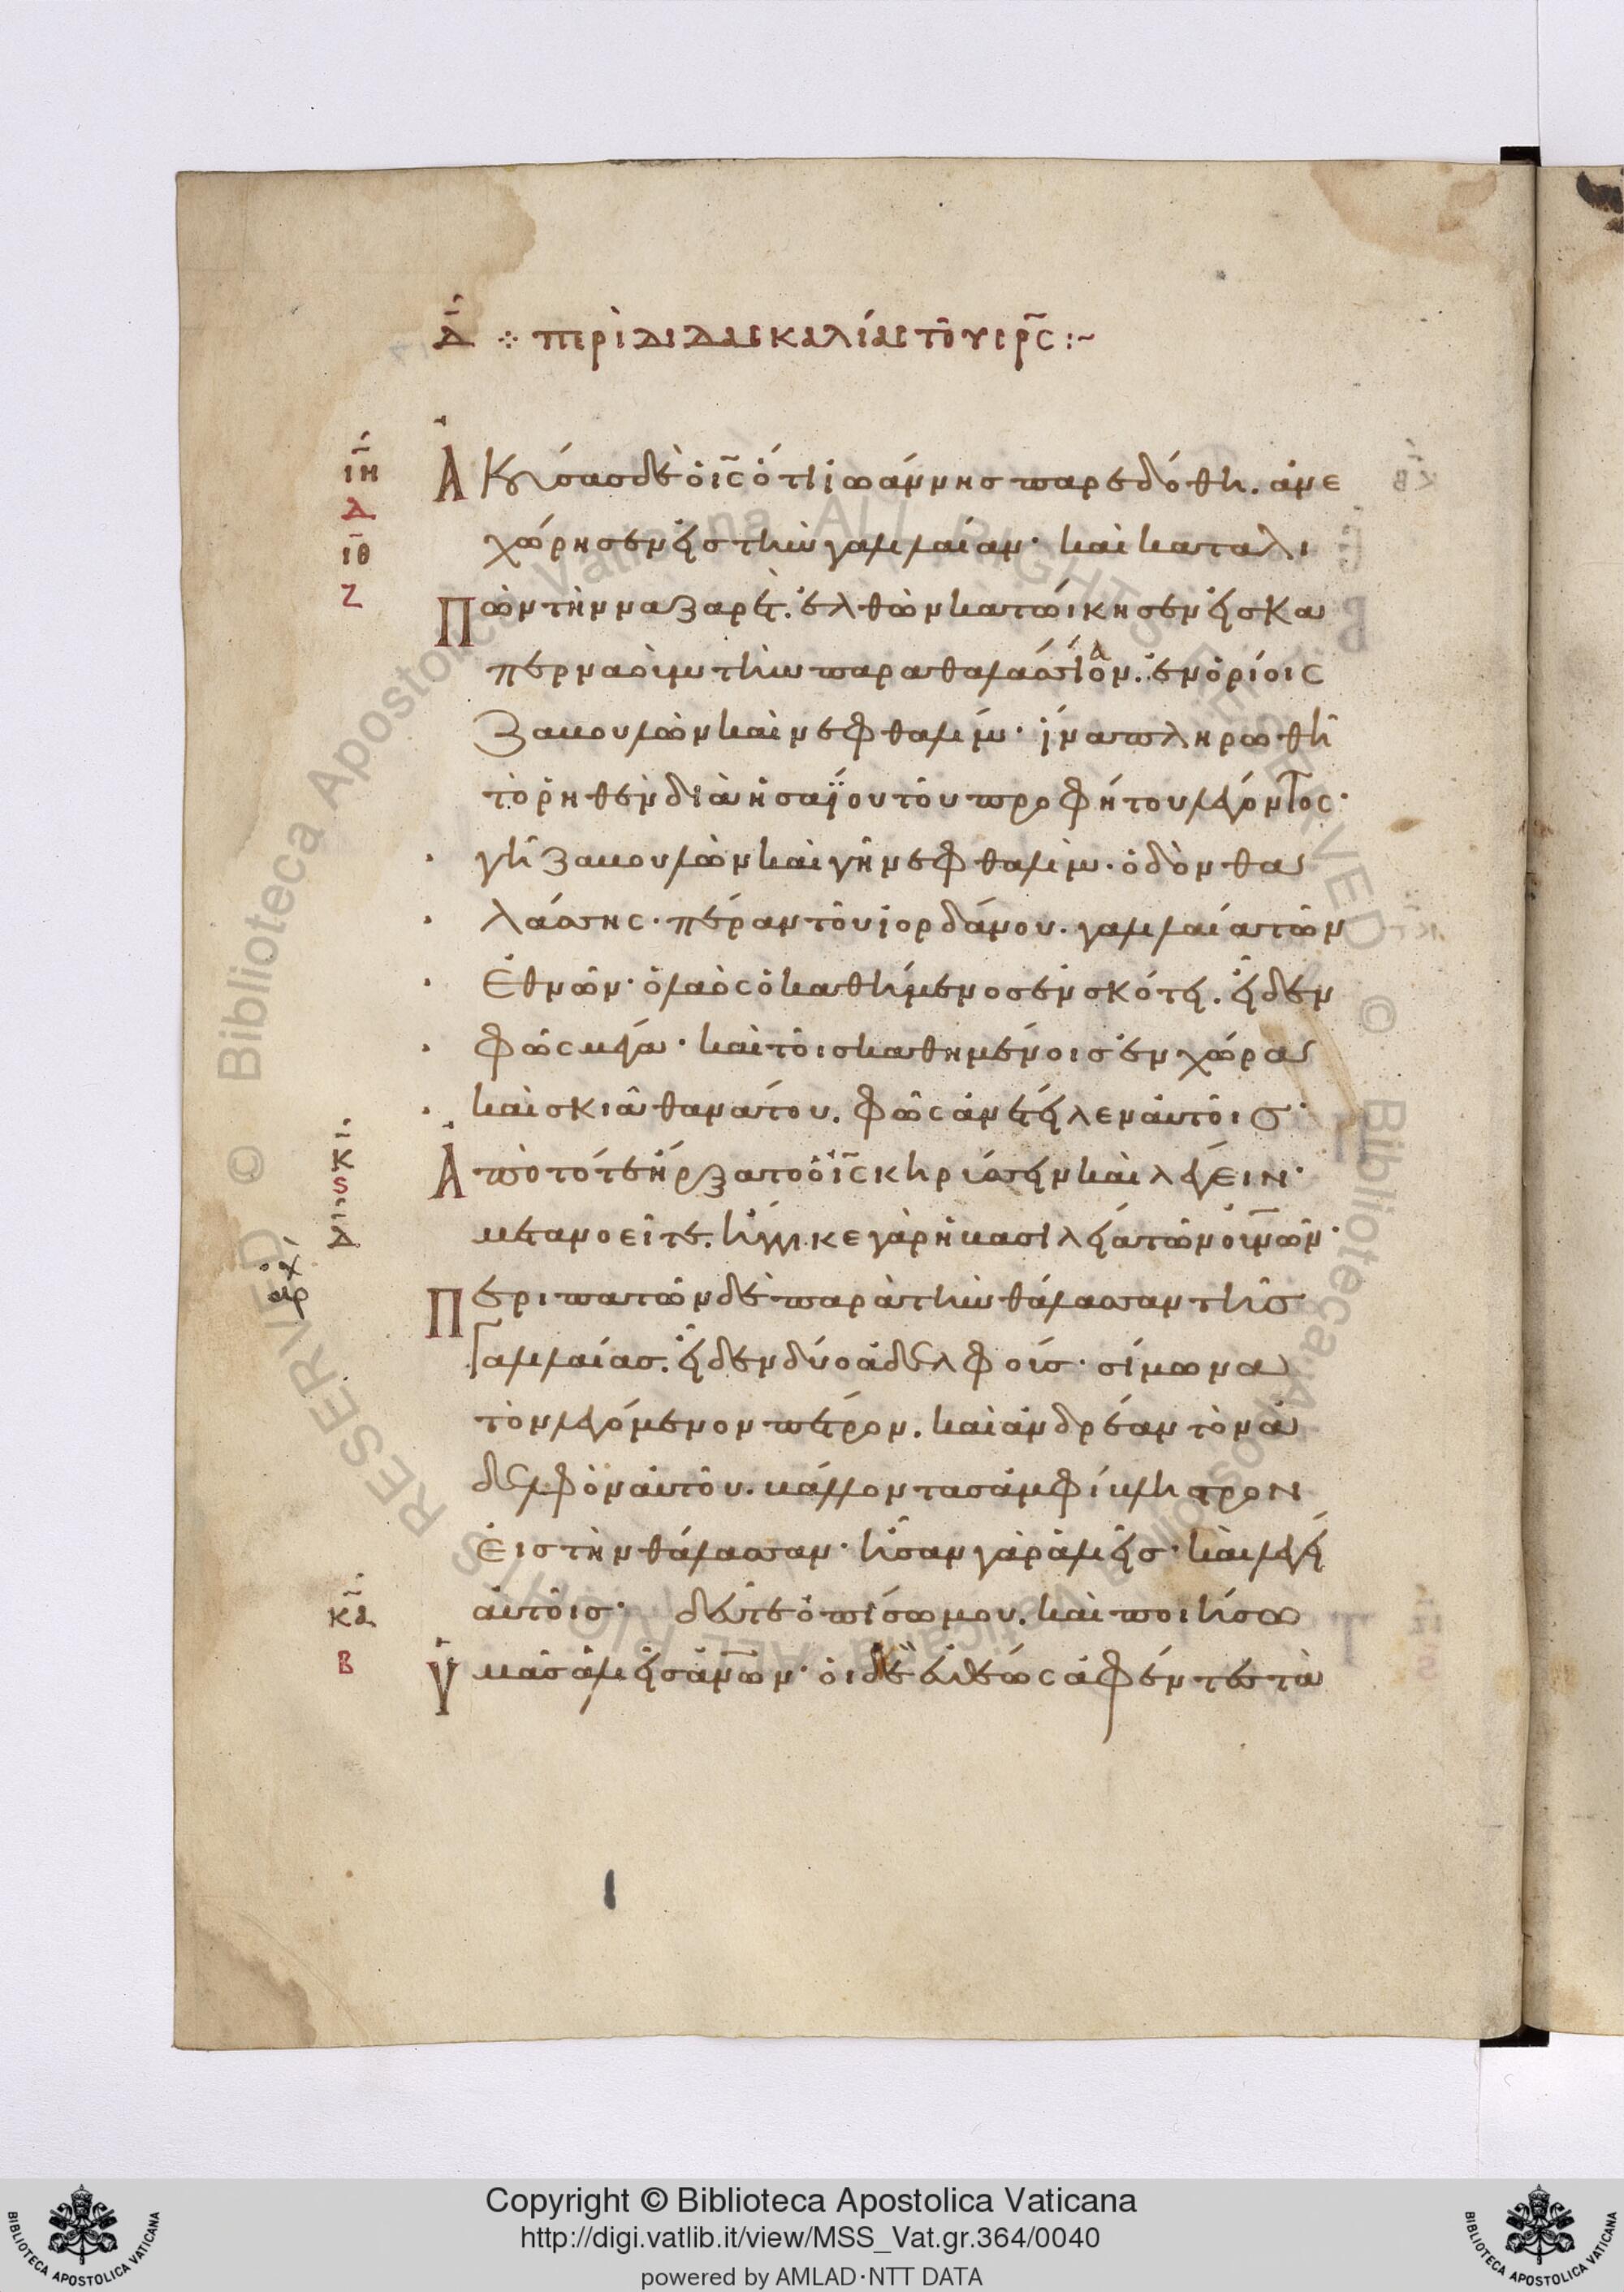 Δ ⁘ περὶ διδασκαλίας τοῦ σρ̅ς :~
ιη Ἀκούσας δὲ ὁ ι̅ς ὅτι ἰωάννης παρεδόθη. ἀνε
Δ
ιθ χώρησεν εἰς τὴν γαλιλαίαν· καὶ καταλι
Ζ
πὼν τὴν ναζαρέτ. ἐλθὼν κατώικησεν εἰς κα
περναοὺμ τὴν παραθαλασσίαν. ἐν ὁρίοις
Ζαβουλὼν καὶ νεφθαλίμ· ἵνα πληρωθῆ
τὸ ῥηθὲν διὰ ἠσαΐου τοῦ προφήτου λέγοντος·
γῆ ζαβουλὼν καὶ γῆ νεφθαλὶμ· ὁδὸν θα
λάσσης· πέραν τοῦ ἰορδάνου. γαλιλαία τῶν
ἐθνῶν· ὁ λαὸς ὁ καθήμενος ἐν σκότει. εἶδεν
φῶς μέγα· καὶ τοῖς καθημένοις ἐν χώρα
καὶ σκιᾶ θανάτου. φῶς ἀνέτειλεν αὐτοῖς·
κ Ἀπὸ τότε ἤρξατο ὁ ι̅ς κηρύσσειν καὶ λέγειν·
ς
Δι μετανοεῖτε. ἤγγικε γὰρ ἡ βασιλεία τῶν οὐ̅νῶν·
ἀρχ Περιπατῶν δὲ παρὰ τὴν θάλασσαν τῆς
Γαλιλαίας. εἶδεν δύο ἀδελφούς· σίμωνα
τὸν λεγόμενον πέτρον. καὶ ἀνδρέαν τὸν ἀ
δελφὸν αὐτοῦ. βάλλοντας ἀμφίβληστρον
εἰς τὴν θάλασσαν· ἦσαν γὰρ ἁλιεῖς· καὶ λέγει
κα αὐτοῖς· δεῦτε ὀπίσω μου. καὶ ποιήσω
Β ὑμᾶς ἁλιεῖς ἀν̅ων· οἱ δὲ εὐθέως ἀφέντες τὰ
Copyright © Biblioteca Apostolica Vaticana
http://digi.vatlib.it/view/MSS_Vat.gr.364/0040
powered by AMLAD·NTT DATA
BIBLIOTECA APOSTOLICA VATICANA
BIBLIOTECA APOSTOLICA VATICANA